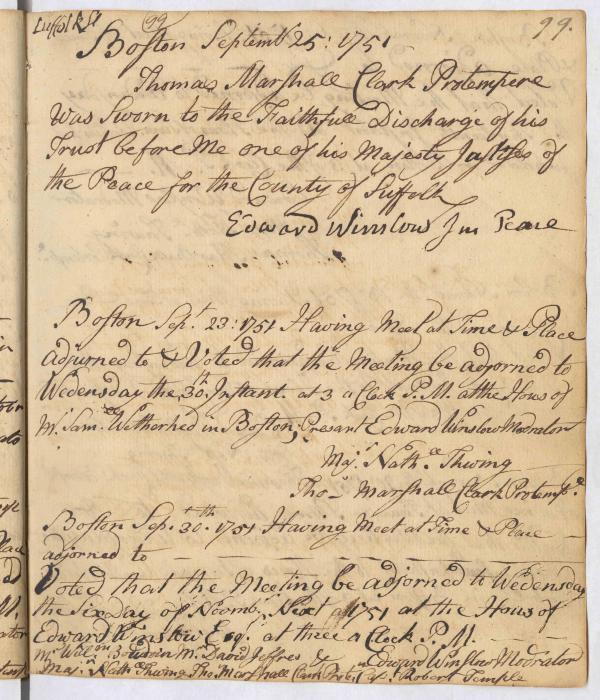 Suffolk Ss
99
99.
Boston Septemb 25: 1751
Thomas Marshall Clark Protempere
Was Sworn to the Faithfull Discharge of his
Trust before Me one of his Majesty Justises of
the Peace for the County of Suffolk
Edward Winslow Jus Peace
Boston Sept. 23: 1751 Having Meet at Time & Place
adjurned to & Voted that the Meeting be adjorned to
Wedensday the 30th Instant at 3 a Clock P.M. at the Hous of
Mr. Sam. Wetherhed in Boston, Presant Edward Winslow Modrator
Majr. Nath. Thwing
Tho Marshall Clark Protemp
Boston Sep. 30th. 1751 Having Meet at Time & Place
adjorned to
Voted that the Meeting be adjorned to Wedensday
the Six day of Novmb. Next 1751 at the Hous of
Edward Winslow Esqr. at three a Clock P.M.
Mr Wilm Bowdoin Mr. David Jeffres & Edward Winslow Modrator
Majr. Nath Thwing Tho. Marshall Clark Robert Temple